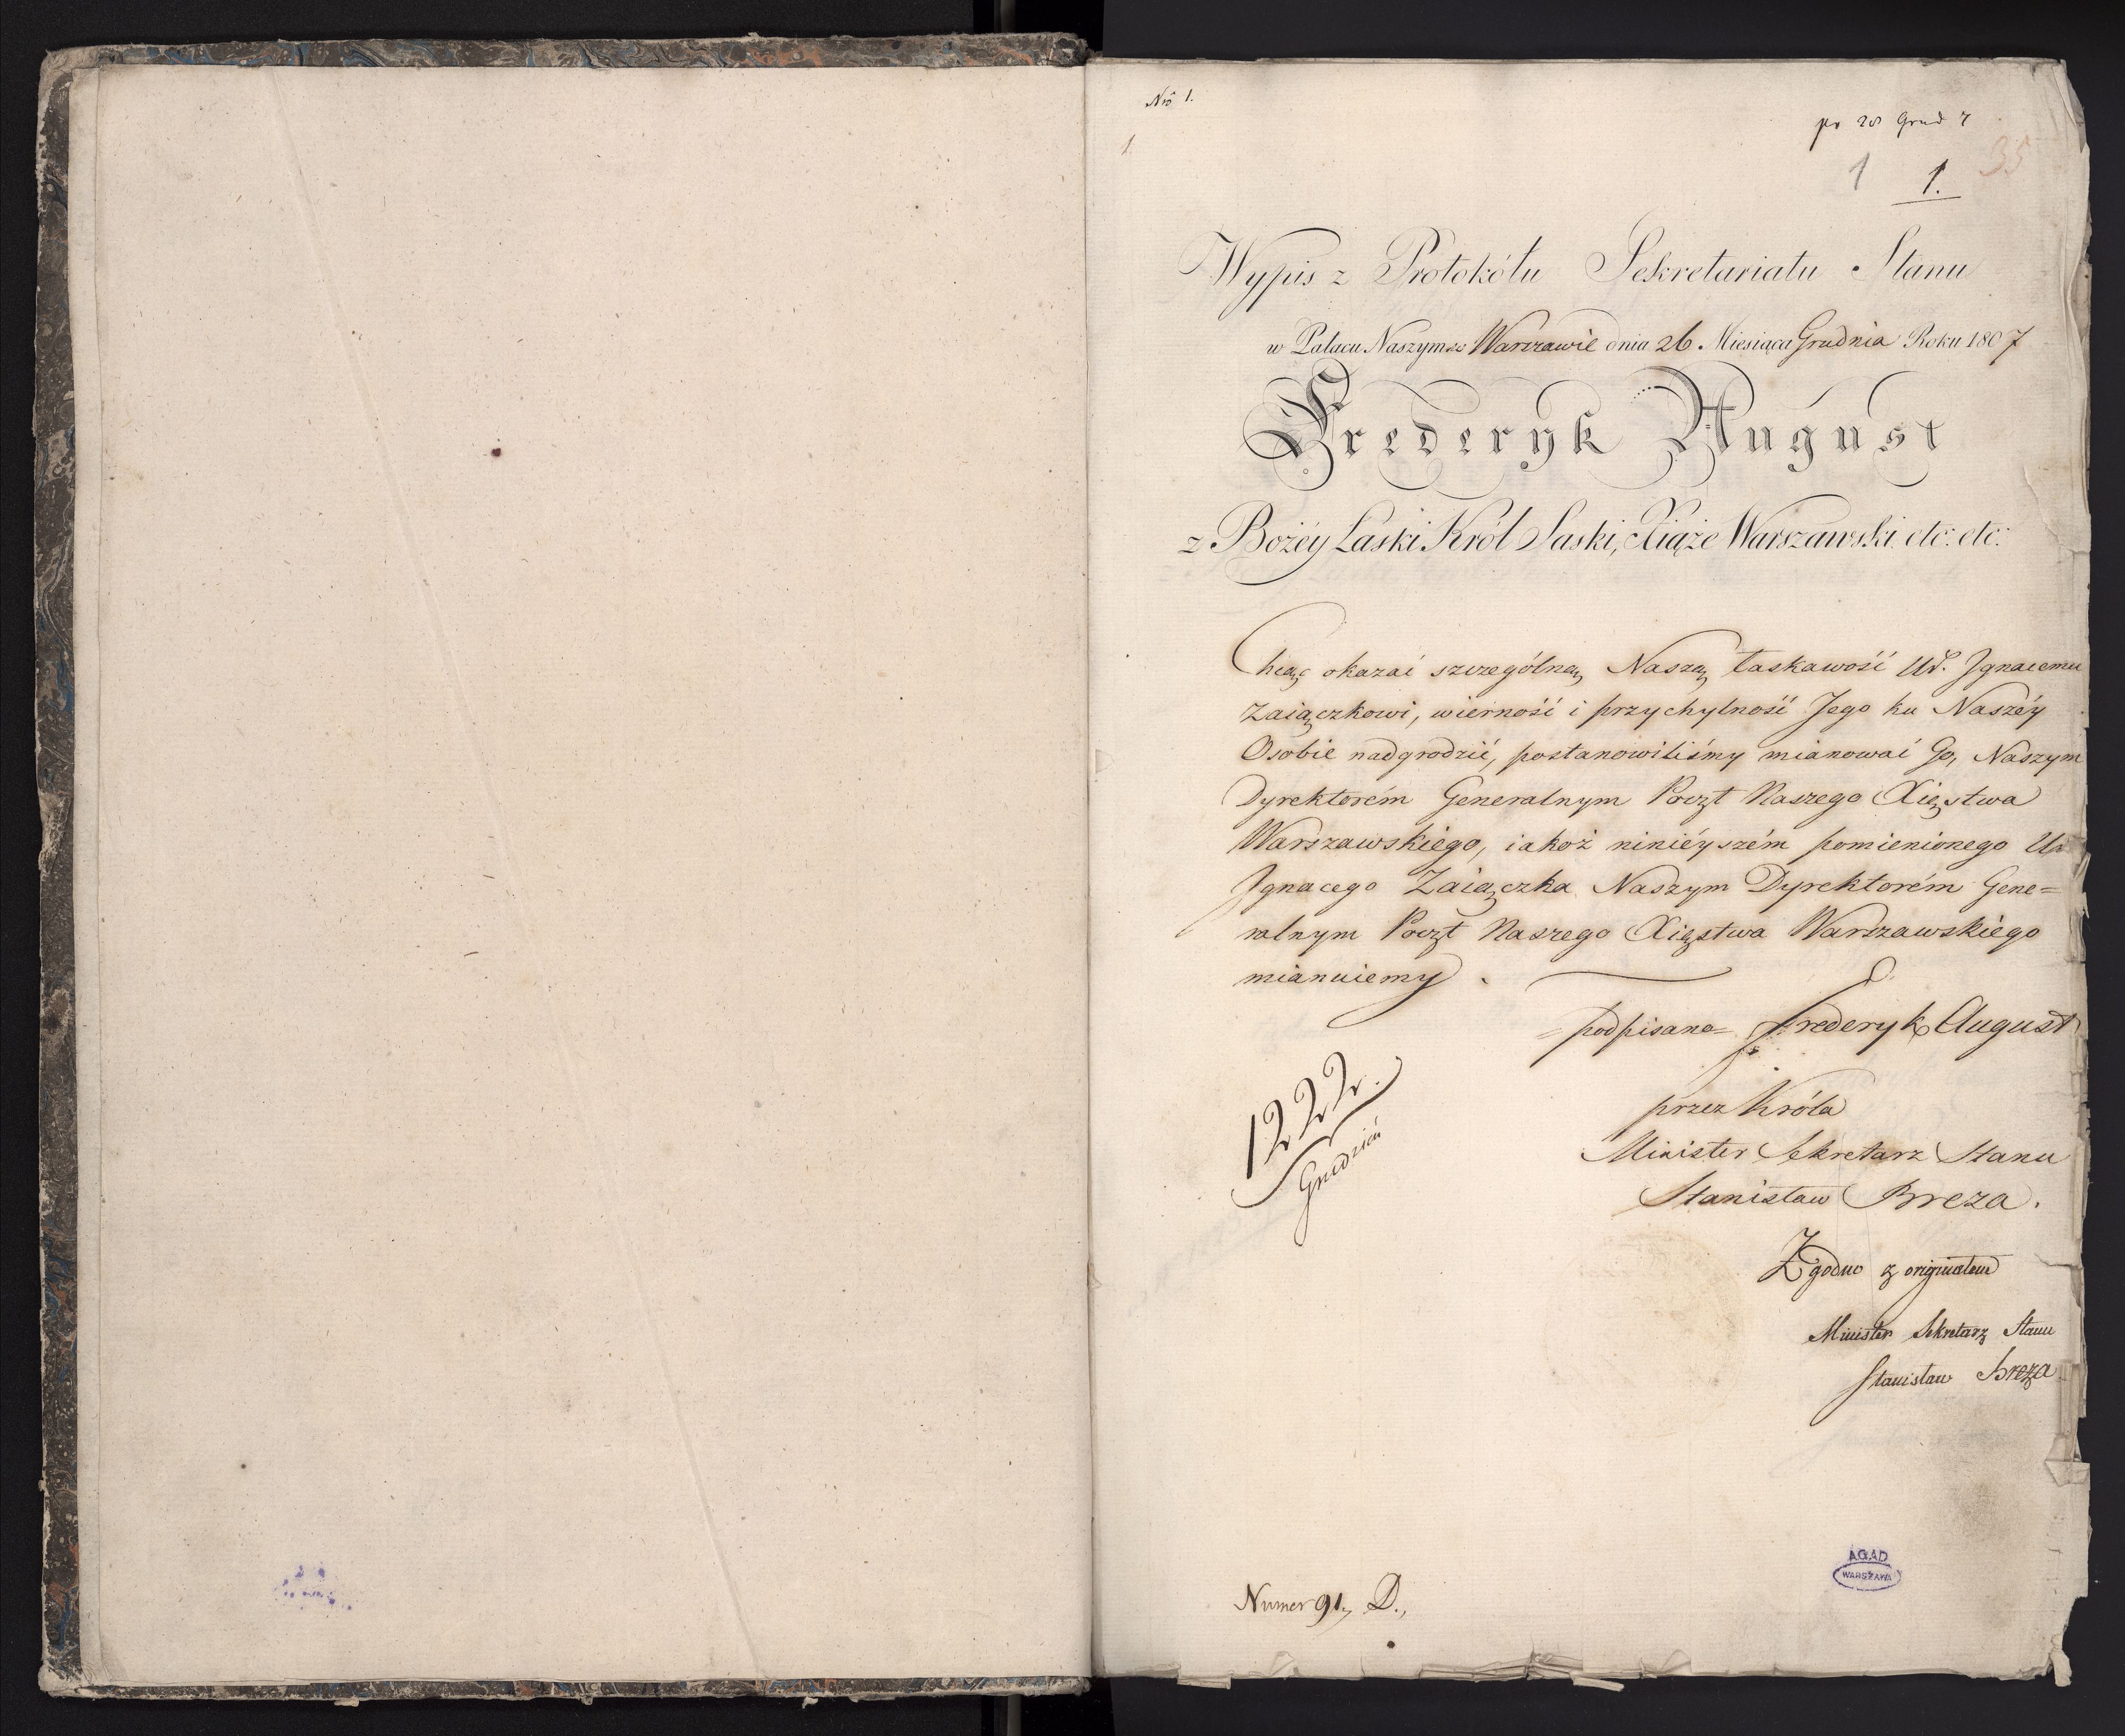 Nrõ 1.
pr 28 Grud 7
1.
35
1 1.
Wypis z Protokółu Sekretariatu Stanu
w Pałacu Naszym w Warszawie dnia 26 Miesiąca Grudnia Roku 1807
Frederyk August
z Bożéy Łaski Król Saski, Xiąże Warszawski etc: etc:
Chcąc okazać szczególną Naszą łaskawość Ur. Jgnacemu
Zaiączkowi, wierność i przychylność Jego ku Naszéy
Osobie nadgrodzić, postanowiliśmy mianować Go, Naszym
Dyrektorém Generalnym Poczt Naszego Xięstwa
Warszawskiégo, iakoż niniéyszém pomienionego Ur
Jgnacego Zaiączka Naszym Dyrektorém Gene=
ralnym Poczt Naszego Xięstwa Warszawskiégo
mianuiemy.
=podpisano= Frederyk August
przez Króla
1222.
Grudzień
Minister Sekretarz Stanu
Stanisław Breza.
Zgodno z originałem
Minister Sekretarz Stanu
Stanisław Breza
AGAD
WARSZAWA
Numer 91, D.,